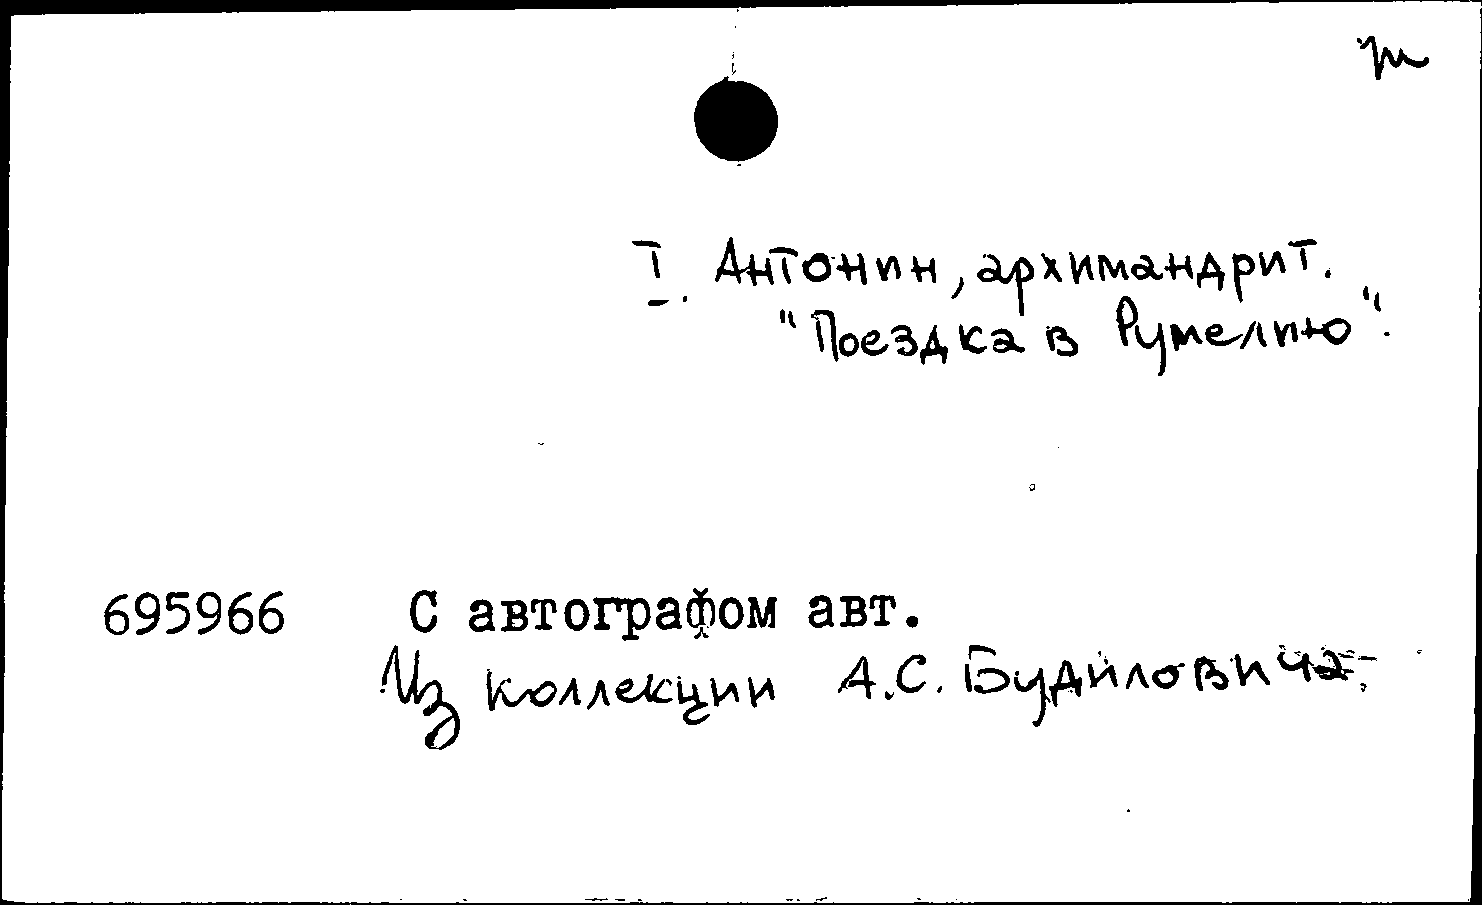 I. Антонин, архимандрит.
"Поездка в Румелию".
695966 С автографом авт.
Из коллекции А.С. Будиловича.